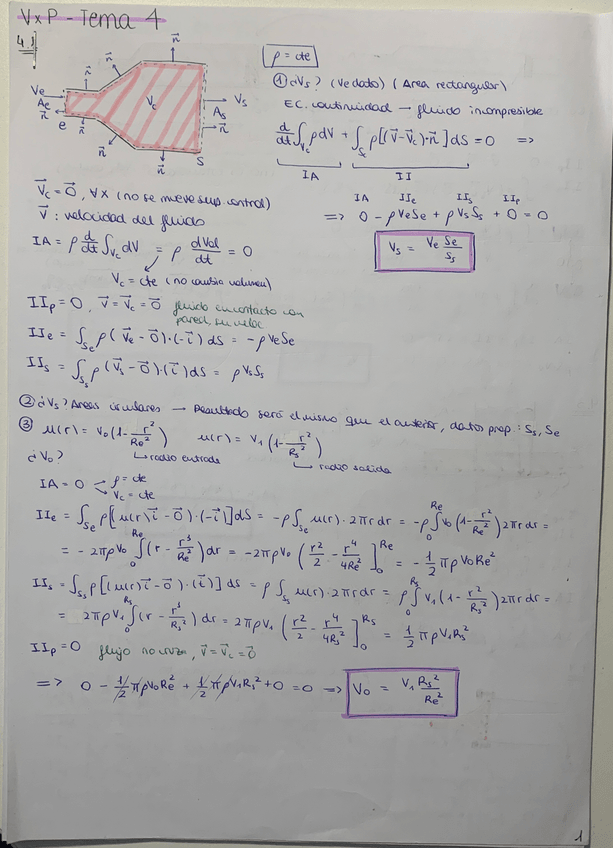 VxP - Tema 4
4.1
n⃗ n⃗ n⃗
Ve Vc Vs
Ae As
n⃗ n⃗
e n⃗ n⃗ n⃗ s
ρ = cte
① ¿Vs? (Ve dato) (Area rectangular)
EC. continuidad → fluido incompresible
d/dt ∫_Vc ρ dV + ∫_Sc ρ[(V⃗ - V⃗c)·n⃗] dS = 0 ⇒
IA II
IA IIe IIs IIp
⇒ 0 - ρ Ve Se + ρ Vs Ss + 0 = 0
Vs = Ve Se/Ss
V⃗c = 0⃗, ∀x (no se mueve sup. control)
V⃗ : velocidad del fluido
IA = ρ d/dt ∫_Vc dV = ρ dVol/dt = 0
Vc = cte (no cambia volumen)
IIp = 0, V⃗ = V⃗c = 0⃗ fluido en contacto con
pared, su veloc
IIe = ∫_Se ρ (V⃗e - 0⃗)·(-i⃗) dS = -ρ Ve Se
IIs = ∫_Ss ρ (V⃗s - 0⃗)·(i⃗) dS = ρ Vs Ss
② ¿Vs? Areas circulares → Resultado será el mismo que el anterior, datos prop: Ss, Se
③ u(r) = V0 (1 - r²/Re²) u(r) = V1 (1 - r²/Rs²)
↳ radio entrada ↳ radio salida
¿V0?
IA = 0 ρ = cte
Vc = cte
IIe = ∫_Se ρ[u(r)i⃗ - 0⃗)·(-i⃗)] dS = -ρ ∫_Se u(r)·2πr dr = -ρ ∫_0^Re V0 (1 - r²/Re²) 2πr dr =
= -2πρV0 ∫_0^Re (r - r³/Re²) dr = -2πρV0 (r²/2 - r⁴/4Re²]_0^Re = -1/2 πρV0Re²
IIs = ∫_Ss ρ[(u(r)i⃗ - 0⃗)·(i⃗)] dS = ρ ∫_Ss u(r)·2πr dr = ρ ∫_0^Rs V1 (1 - r²/Rs²) 2πr dr =
= 2πρV1 ∫_0^Rs (r - r³/Rs²) dr = 2πρV1 (r²/2 - r⁴/4Rs²]_0^Rs = 1/2 πρV1Rs²
IIp = 0 flujo no cruza, V⃗ = V⃗c = 0⃗
⇒ 0 - 1/2 πρV0Re² + 1/2 πρV1Rs² + 0 = 0 ⇒ V0 = V1 Rs²/Re²
1